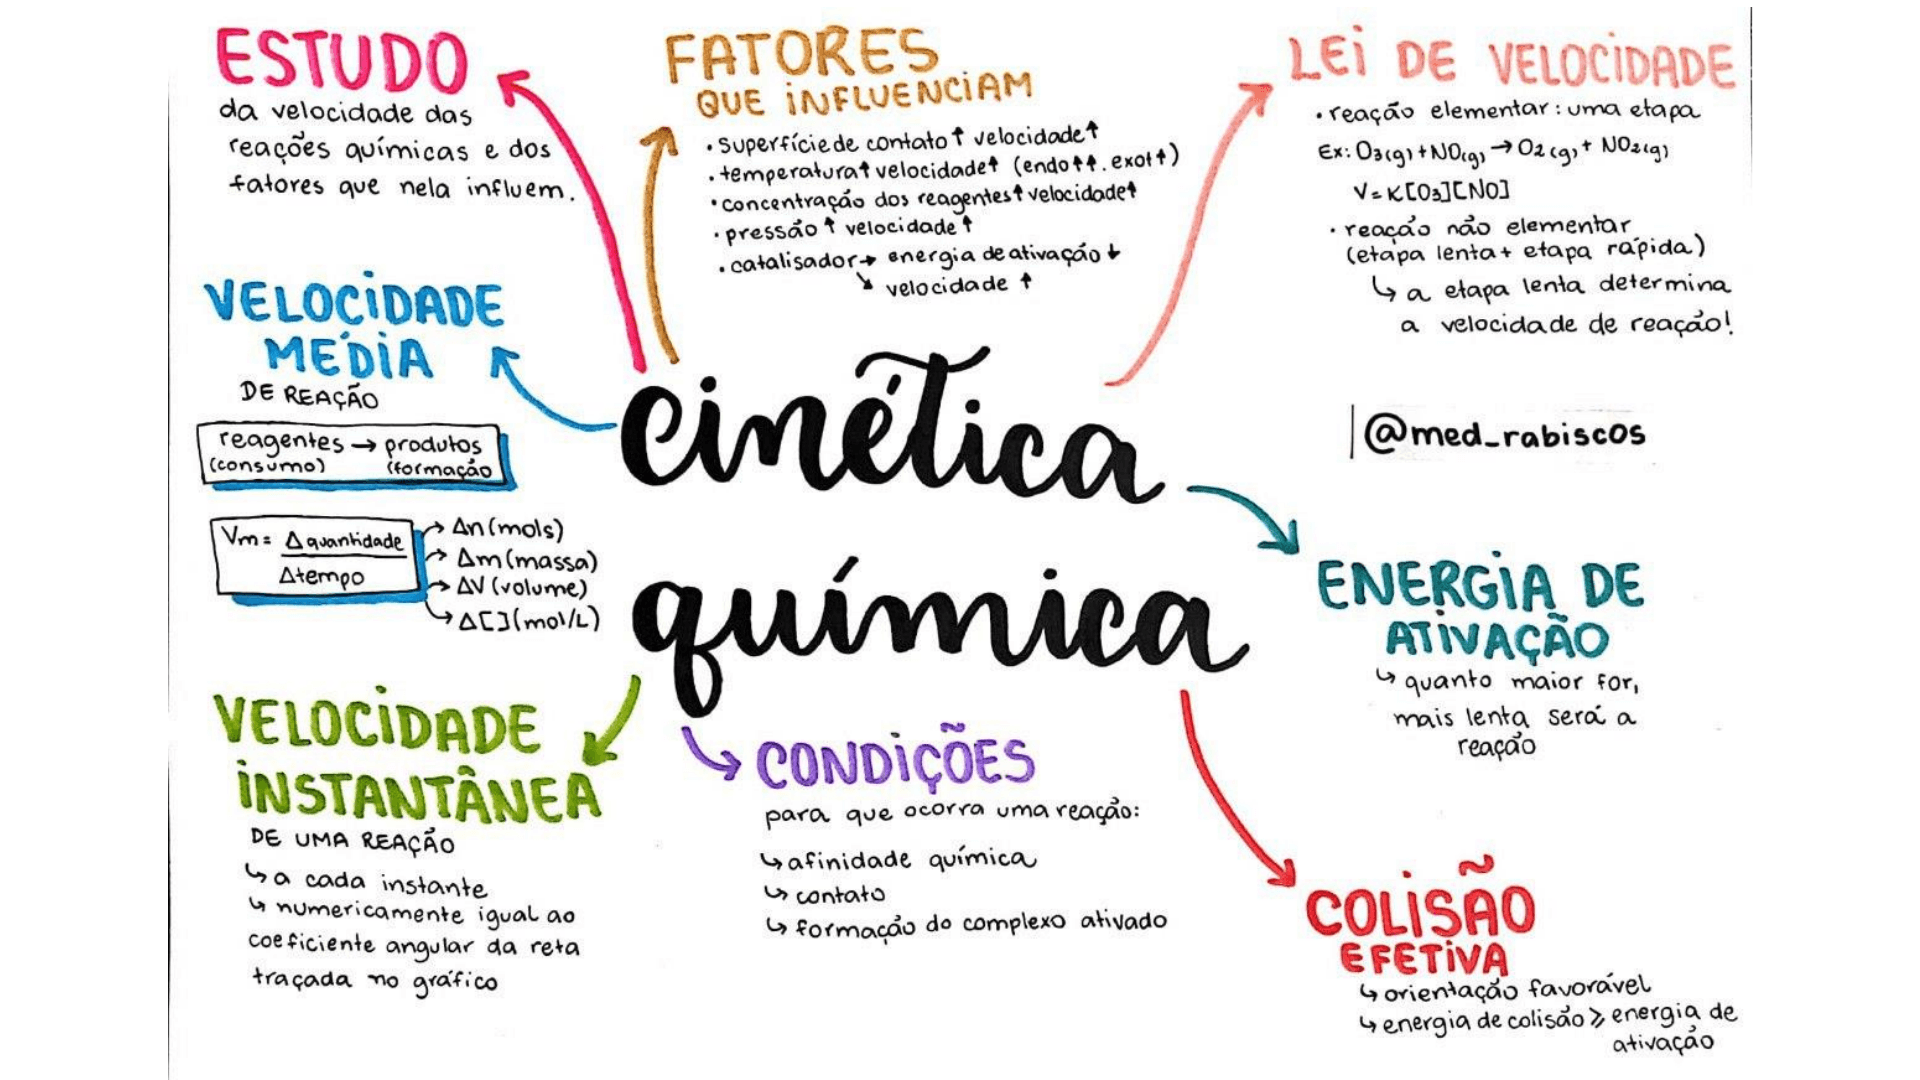 ESTUDO
da velocidade das
reações químicas e dos
fatores que nela influem.
FATORES
QUE INFLUENCIAM
• superfície de contato ↑ velocidade ↑
• temperatura ↑ velocidade ↑ (endo ↑↑. exo ↑)
• concentração dos reagentes ↑ velocidade ↑
• pressão ↑ velocidade ↑
• catalisador → energia de ativação ↓
↘ velocidade ↑
LEI DE VELOCIDADE
• reação elementar: uma etapa
Ex: O3(g) + NO(g) → O2(g) + NO2(g)
V = K[O3][NO]
• reação não elementar
(etapa lenta + etapa rápida)
↳ a etapa lenta determina
a velocidade de reação!
VELOCIDADE
MÉDIA
DE REAÇÃO
reagentes → produtos
(consumo) (formação
Vm = Δquantidade
Δtempo
→ Δn (mols)
→ Δm (massa)
→ ΔV (volume)
→ Δ[ ] (mol/L)
cinética
química
@med_rabiscos
ENERGIA DE
ATIVAÇÃO
↳ quanto maior for,
mais lenta será a
reação
VELOCIDADE
INSTANTÂNEA
DE UMA REAÇÃO
↳ a cada instante
↳ numericamente igual ao
coeficiente angular da reta
traçada no gráfico
CONDIÇÕES
para que ocorra uma reação:
↳ afinidade química
↳ contato
↳ formação do complexo ativado
COLISÃO
EFETIVA
↳ orientação favorável
↳ energia de colisão ⩾ energia de
ativação